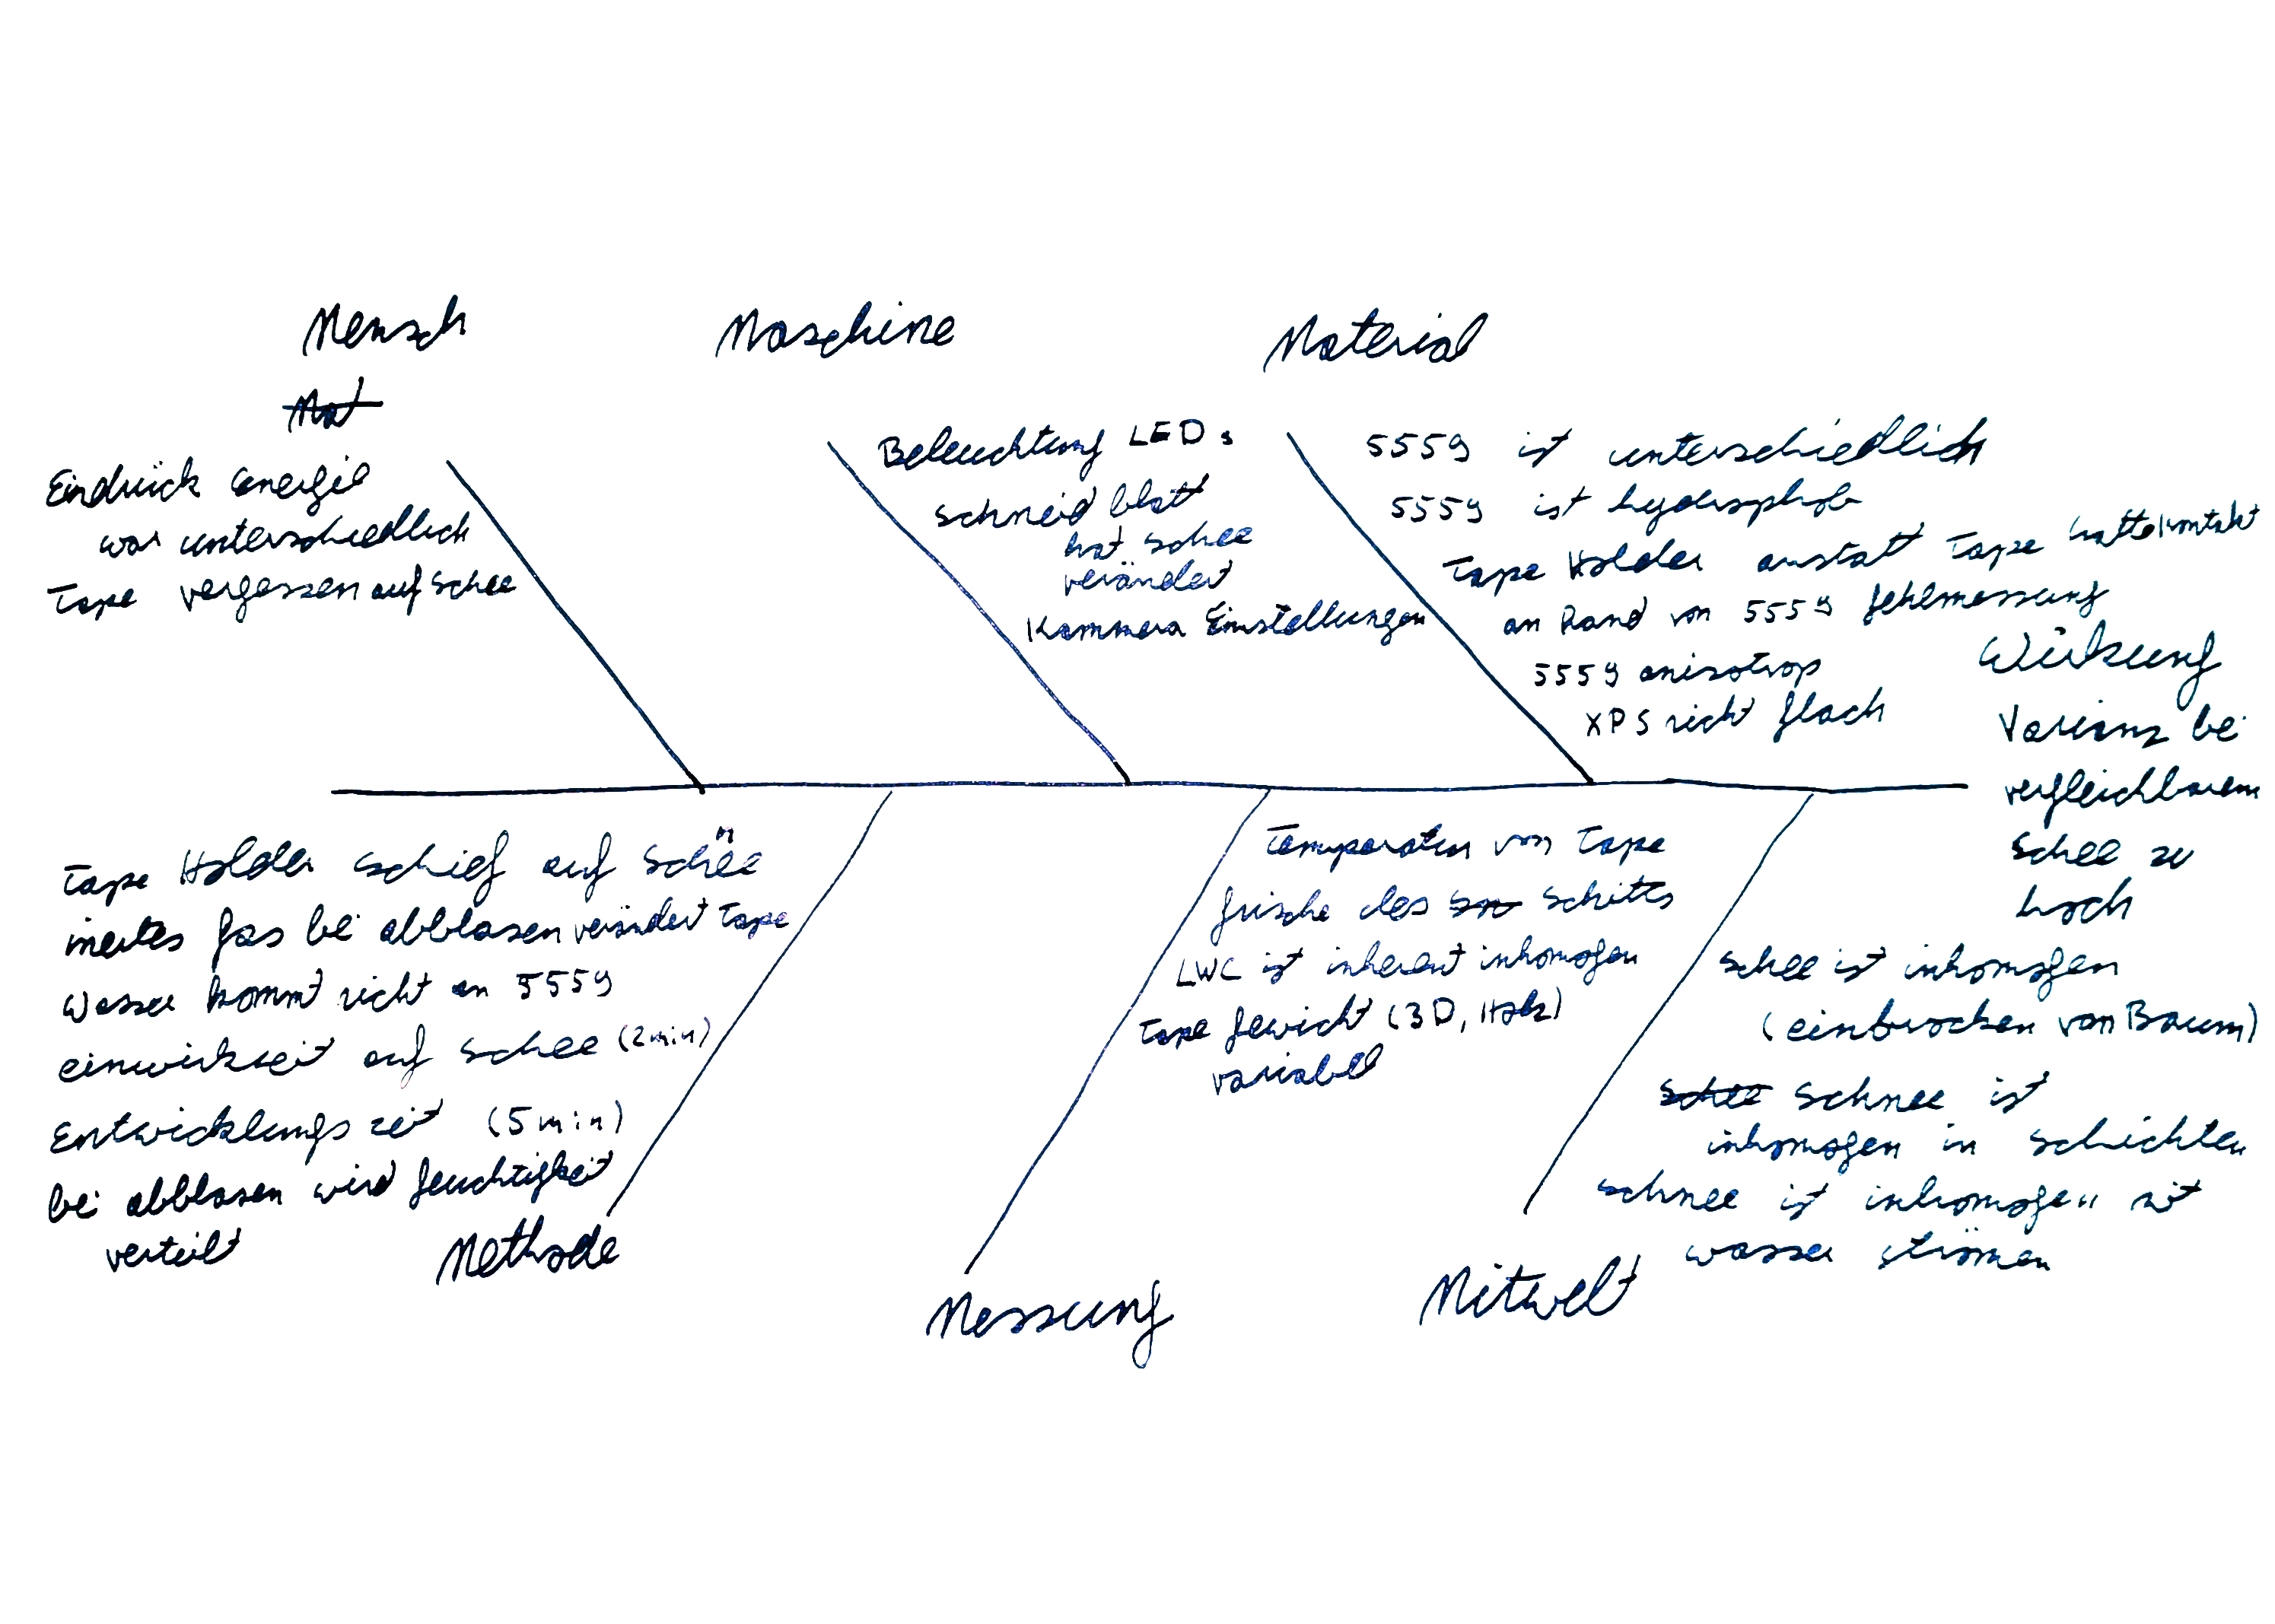 Mensch
Mat
Eindrück energie
war unterschiedlich
Tape vergessen auf Schee
Maschine
Beleuchtung LEDs
Schneid blatt
hat schee
verändert
Kammera Einstellungen
Material
5559 ist unterschiedlich
5559 ist
Tape Holder anstatt Tape hatte kontakt
an Rand von 5559 fehlmessung
5559 anisotrop
XPS nicht flach
Wirkung
Varianz bei
vergleichbarem
Schee zu
hoch
Tape Holder schief auf Schnee
inertes gas bei abblasen verändert Tape
Wasser kommt nicht an 5559
einwirkzeit auf schee (2min)
Entwicklungs zeit (5min)
bei abblasen wird feuchtigkeit
verteilt
Methode
Temperatur von Tape
frische des Schitts
LWC ist inherent inhomogen
Tape gewicht (3D, Holz)
variabel
Messung
Schee ist inhomogen
(einbrocken von Baum)
Schee Schnee ist
inhomogen in schichten
schnee ist inhomogen mit
wasser strömen
Mitwelt